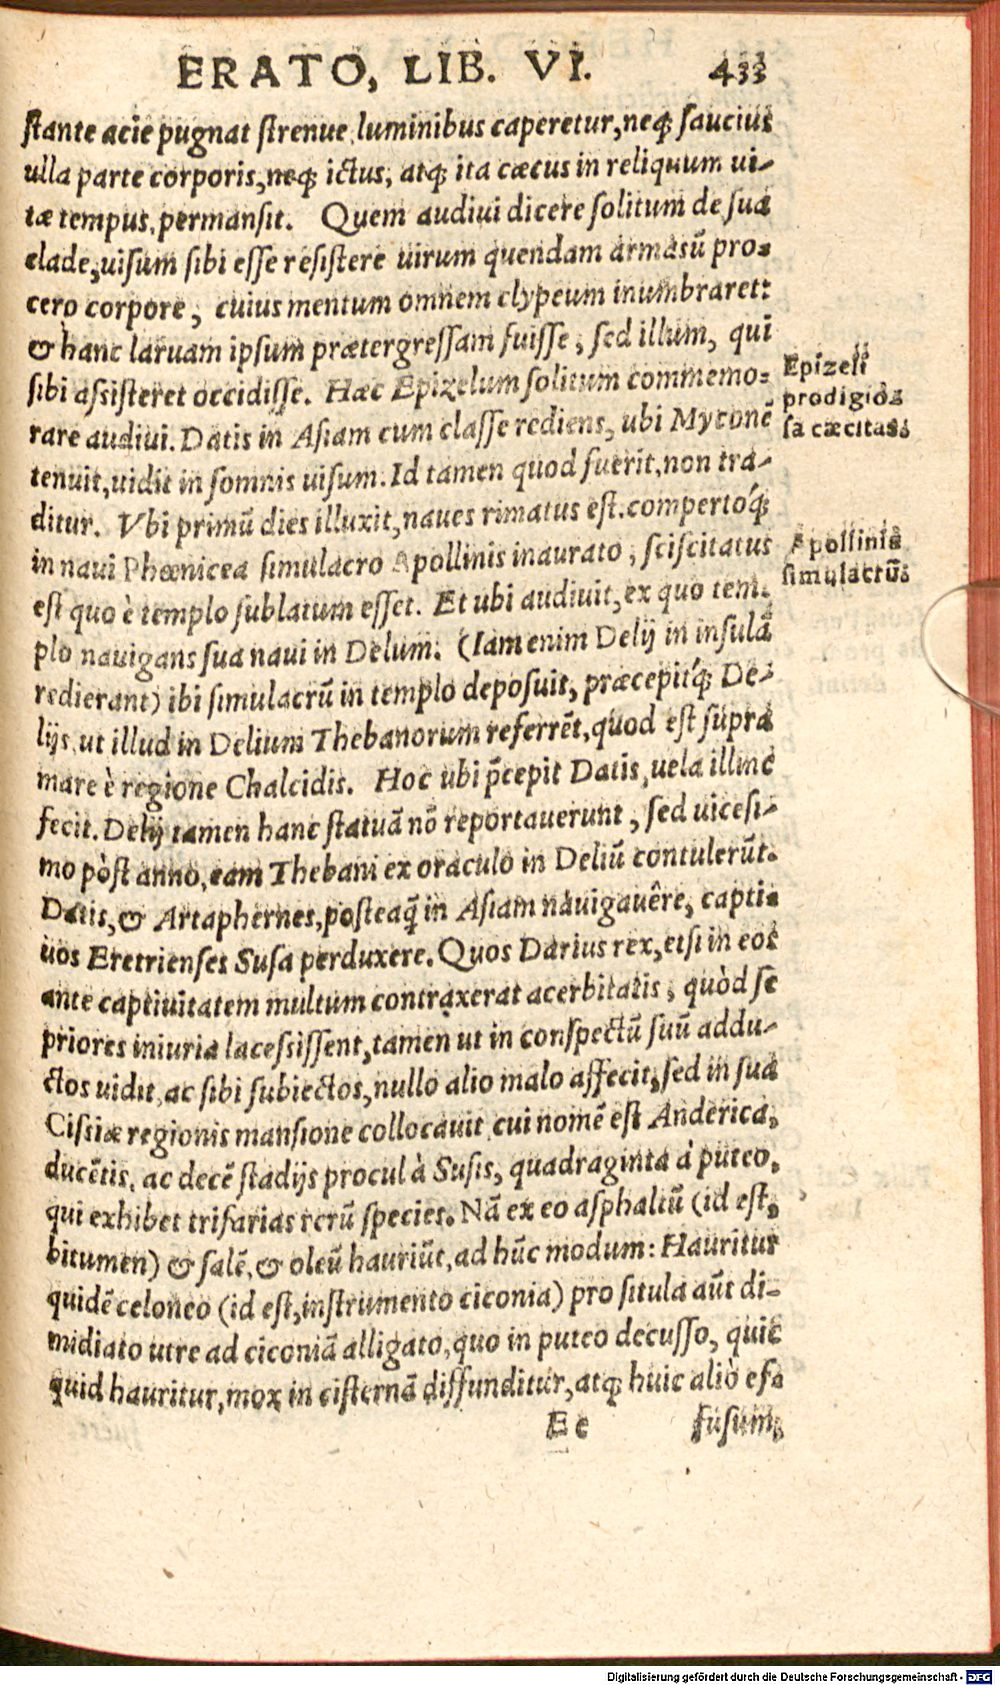 ERATO, LIB. VI. 433
stante acie pugnat strenue luminibus caperetur, neqꝫ saucius
ulla parte corporis, neqꝫ ictus, atqꝫ ita cæcus in reliquum ui-
tæ tempus permansit. Quem audiui dicere solitum de sua
clade, uisum sibi esse resistere uirum quendam armatū pro-
cero corpore, cuius mentum omnem clypeum inumbraret:
& hanc laruam ipsum prætergressam fuisse, sed illum, qui
sibi assisteret occidisse. Hæc Epizelum solitum commemo-
rare audiui. Datis in Asiam cum classe rediens, ubi Myconē
tenuit, uidit in somnis uisum. Id tamen quod fuerit, non tra-
ditur. Vbi primū dies illuxit, naues rimatus est. compertóqꝫ
in naui Phœnicea simulacro Apollinis inaurato, sciscitatus
est quo è templo sublatum esset. Et ubi audiuit, ex quo tem-
plo nauigans sua naui in Delum: (Iam enim Delij in insulā
redierant) ibi simulacrū in templo deposuit, præcepitq́ꝫ De-
lijs, ut illud in Delium Thebanorum referrēt, quod est supra
mare è regione Chalcidis. Hoc ubi p̄cepit Datis, uela illinc
fecit. Delij tamen hanc statuā nō reportauerunt, sed uicesi-
mo pòst anno, eam Thebani ex oraculo in Deliū contulerūt.
Datis, & Artaphernes, posteaq̄ in Asiam nauigauêre, capti-
uos Eretrienses Susa perduxere. Quos Darius rex, etsi in eos
ante captiuitatem multum contraxerat acerbitatis, quòd se
priores iniuria lacessissent, tamen ut in conspectū suū addu-
ctos uidit, ac sibi subiectos, nullo alio malo affecit, sed in sua
Cissiæ regionis mansione collocauit cui nomē est Anderica,
ducētis, ac decē stadijs procul à Susis, quadraginta à puteo,
qui exhibet trifarias rerū species. Nā ex eo asphaltū (id est,
bitumen) & salē, & oleū hauriūt, ad hūc modum: Hauritur
quidē celoneo (id est, instrumento ciconia) pro situla aūt di-
midiato utre ad ciconiā alligato, quo in puteo decusso, quic
quid hauritur, mox in cisternā diffunditur, atqꝫ huic aliò ef-
Ee fusum,
Epizeli
prodigio-
sa cæcitas.
Apollinis
simulacrū.
Digitalisierung gefördert durch die Deutsche Forschungsgemeinschaft - DFG